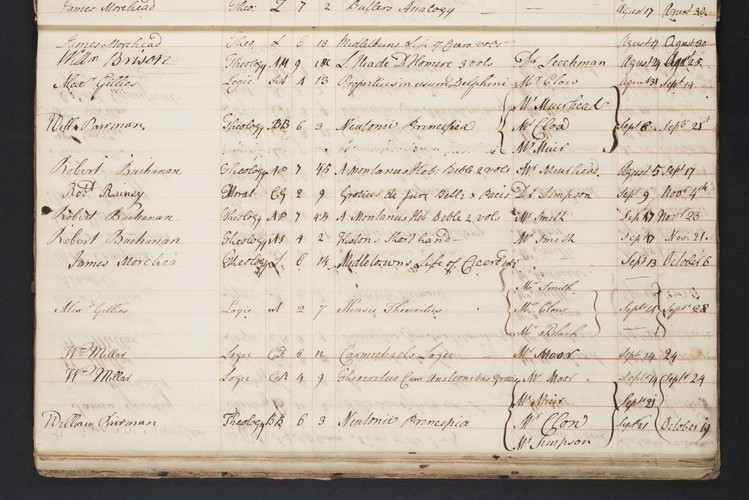 James Morehead Theo. L 7 2 Butlers Analogy — — August 17 August 30
James Morehead Theo L 6 13 Midletouns Life of Cicero vols August 17 August 30
Willm Theology 9 L'Iliade D'Homere 3 vols Dr Leechman August 24 Agt 25
Alexr Gillies Logic 4 13 Propertius in usum Delphini Mr Clow August 31 Septr 14
Mr Muirhead
Willm Fairman Theology BB 6 3 Neutonis Principia Mr Clow Septr 8 Septr 21st
Mr Muir
Robert Buchanan Theology 7 45 A Montanus Heb. Bible 2 vols Mr Muirhead August 5 Septr 17
Robt Rainey Moral CG 2 9 Grotius de jure Belli & Pacis Dr Simpson Septr 9 Novr 4th
Robert Buchanan Theology 7 44 A Montanus Heb Bible 2 vols Mr Smith Sep 17 Novr 23
Robert Buchanan Theology 4 2 Short hand Mr Smith Sep 17 Nov. 21.
James Morehea Theology L 6 14 Midletowns Life of Cicero Septr 13 October 6
Mr Smith
Alexr Gillies Logic A 2 7 Mr Clow Septr 14 Septr 28
Mr Black
Wm Millar Logic 5 Carmichaels Logic — Mr Moor Sept 14 24
Wm Millar Logic 4 9 Theocratus Cum Mr Moor Septr 14 Septr 24
Mr Muir Septr 21
William Fairman Theology BB 6 3 Neutonis Principia Mr Clow Septr 21 October 19
Mr Simpson